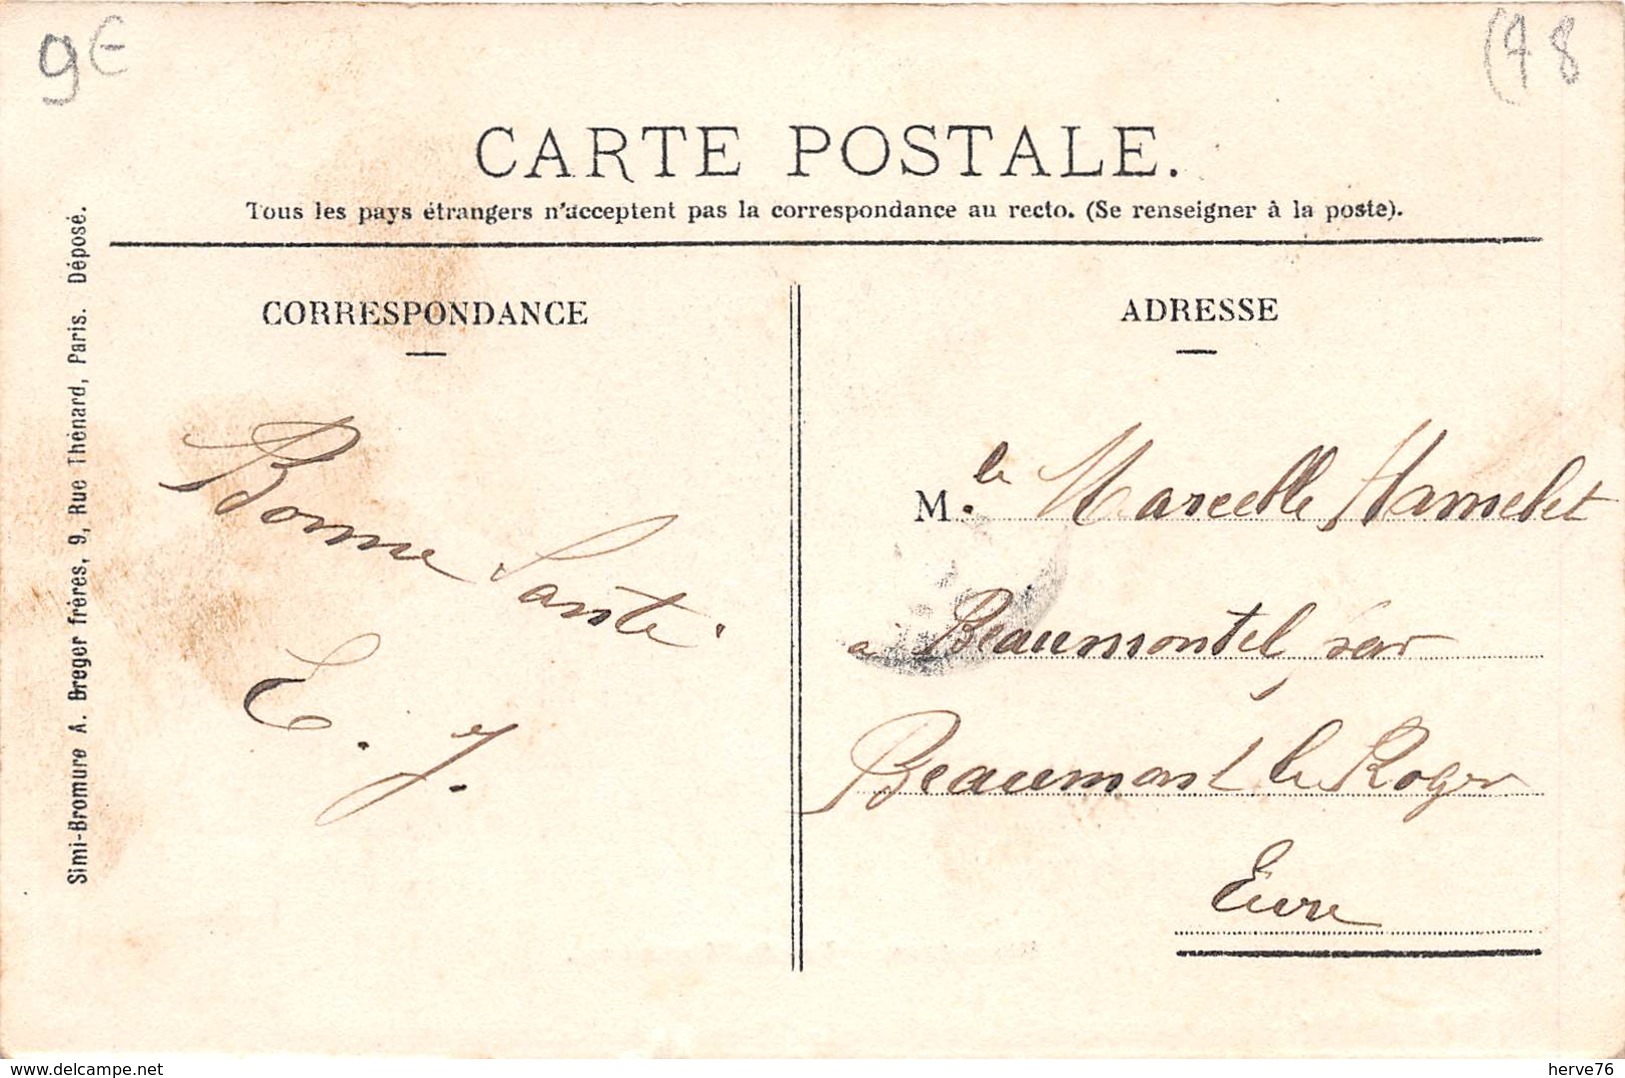 9€
(78
CARTE POSTALE.
Tous les pays étrangers n'acceptent pas la correspondance au recto. (Se renseigner à la poste).
Simi-Bromure A. Breger frères, 9, Rue Thénard, Paris. Déposé.
CORRESPONDANCE
Bonne Sante.
E. J.
ADRESSE
M.lle Marcelle Hamelet
a Beaumontel par
Beaumont le Roger
Eure
www.delcampe.net
herve76